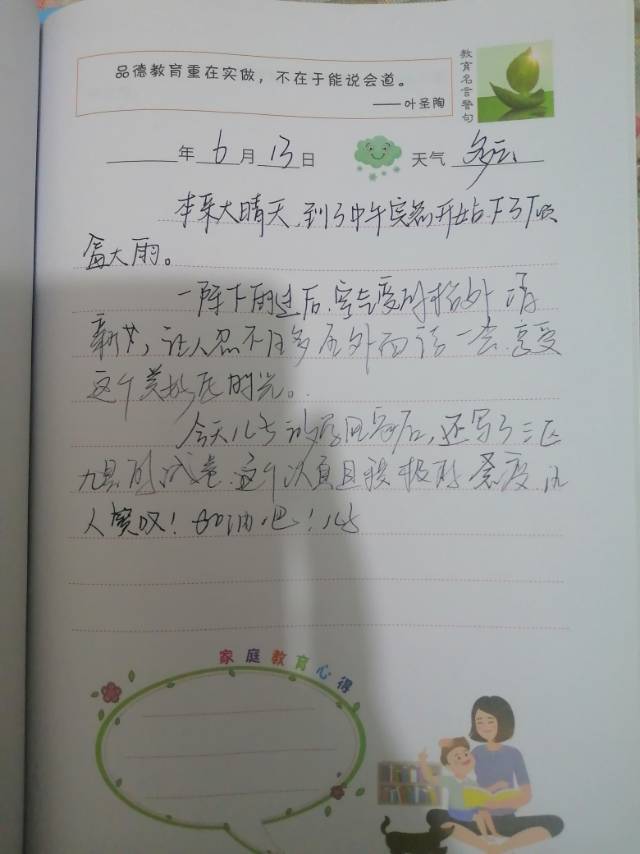 品德教育重在实做，不在于能说会道。
——叶圣陶
教育名言警句
年 6 月 13 日 天气 多云
本来大晴天，到了中午突然开始下了倾
盆大雨。
一阵下雨过后，空气变的格外清
新，让人忍不住多在外面待一会，享受
这个美好的时光。
今天儿子放学回家后，还写了三区
九县的试卷，这个认真且积极的态度，让
人赞叹！加油吧！儿子
家庭教育心得